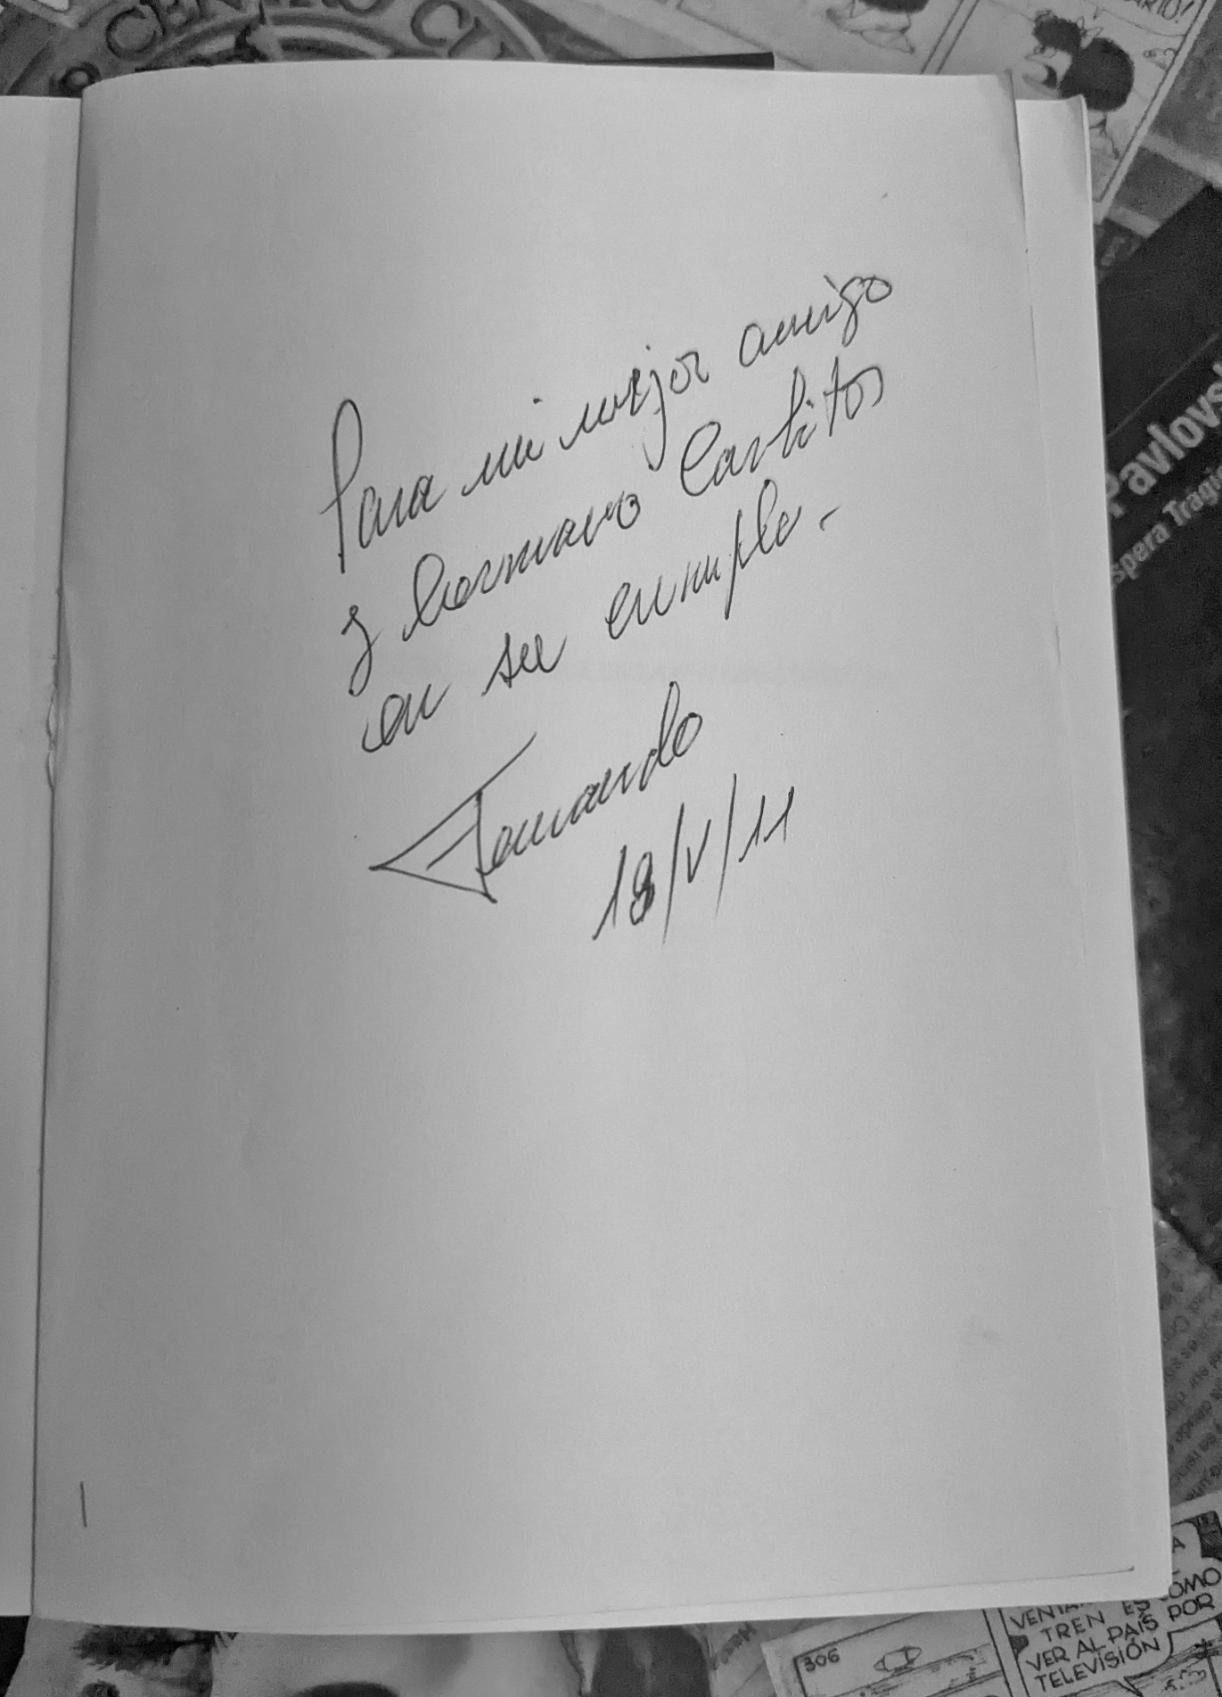 CENTRO CU
ARIO!
Para mi mejor amigo
y hermano Carlitos
en su cumple.-
Fernando
18/V/11
Pavlovs
spera Trag
306
VENTA
TREN ES COMO
VER AL PAÍS POR
TELEVISIÓN